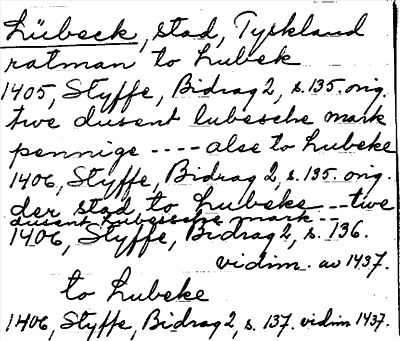 Lübeck, stad, Tyskland
ratman to Lubek
1405, Styffe, Bidrag 2, s. 135. orig.
twe dusent lubesche mark
pennige ---- alse to Lubeke
1406, Styffe, Bidrag 2, s. 135. orig.
der stad to Lubeke --- twe
dusent lubessche mark --
1406, Styffe, Bidrag 2, s. 136.
vidim. av 1437.
to Lubeke
1406, Styffe, Bidrag 2, s. 137. vidim 1437.